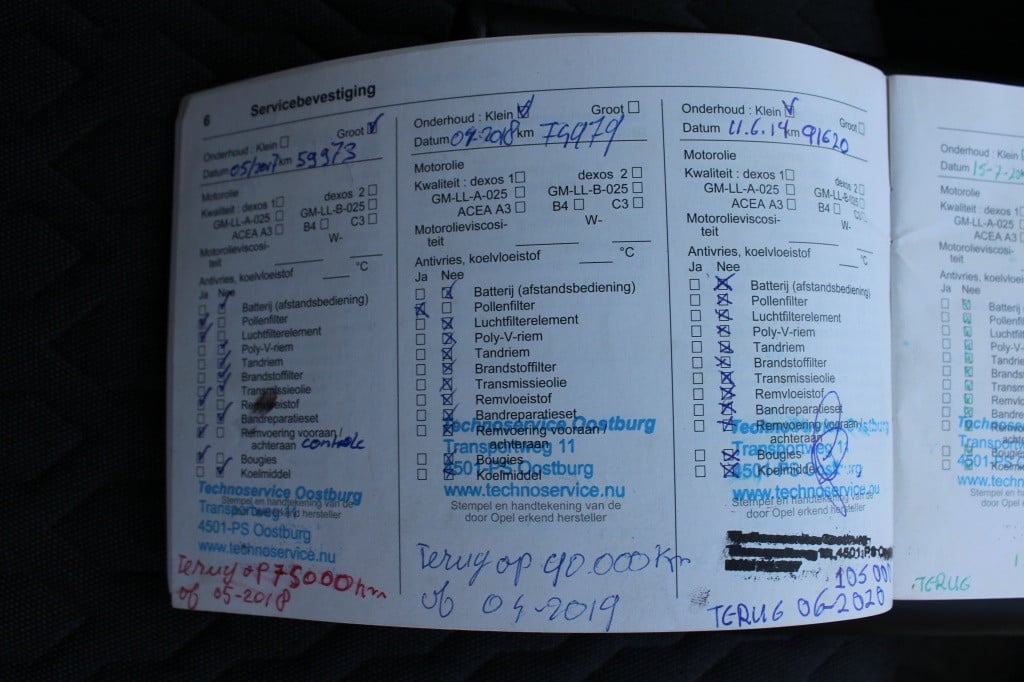 6 Servicebevestiging
Onderhoud : Klein Groot
Datum 05/2017 km 59973
Motorolie
Kwaliteit : dexos 1 dexos 2
GM-LL-A-025 GM-LL-B-025
ACEA A3 B4 C3
Motorolieviscosi-
teit W-
Antivries, koelvloeistof °C
Ja Nee
Batterij (afstandsbediening)
Pollenfilter
Luchtfilterelement
Poly-V-riem
Tandriem
Brandstoffilter
Transmissieolie
Remvloeistof
Bandreparatieset
Remvoering vooraan /
achteraan controle
Bougies
Koelmiddel
Technoservice Oostburg
Stempel en handtekening van de
door Opel erkend hersteller
Transportweg 11
4501-PS Oostburg
www.technoservice.nu
Terug op 75000 km
of 05-2018
Onderhoud : Klein Groot
Datum 04-2018 km 74979
Motorolie
Kwaliteit : dexos 1 dexos 2
GM-LL-A-025 GM-LL-B-025
ACEA A3 B4 C3
Motorolieviscosi-
teit W-
Antivries, koelvloeistof °C
Ja Nee
Batterij (afstandsbediening)
Pollenfilter
Luchtfilterelement
Poly-V-riem
Tandriem
Brandstoffilter
Transmissieolie
Remvloeistof
Bandreparatieset
Remvoering vooraan /
achteraan
Bougies
Koelmiddel
Technoservice Oostburg
Transportweg 11
4501-PS Oostburg
www.technoservice.nu
Stempel en handtekening van de
door Opel erkend hersteller
Terug op 90.000 km
of 04-2019
Onderhoud : Klein Groot
Datum 11.6.19 km 91620
Motorolie
Kwaliteit : dexos 1 dexos 2
GM-LL-A-025 GM-LL-B-025
ACEA A3 B4
Motorolieviscosi-
teit W-
Antivries, koelvloeistof °C
Ja Nee
Batterij (afstandsbediening)
Pollenfilter
Luchtfilterelement
Poly-V-riem
Tandriem
Brandstoffilter
Transmissieolie
Remvloeistof
Bandreparatieset
Remvoering vooraan/
achteraan
Bougies
Koelmiddel
Technoservice Oostburg
Transportweg
www.technoservice.nu
Stempel en handtekening van de
door Opel erkend hersteller
105 00
TERUG 06-2020
Onderhoud : Klein
Datum 15-7-20
Motorolie
Kwaliteit : dexos 1
GM-LL-A-025
ACEA A3
Motorolieviscosi-
teit
Antivries, koelvloeistof
Ja Nee
TERUG